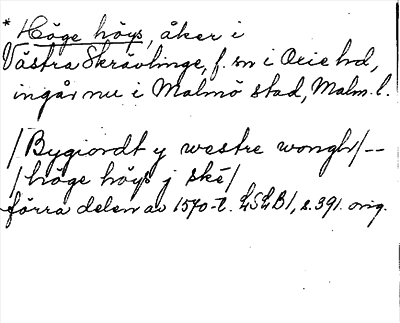 * Höge höys, åker i
Västra Skrävlinge, f. sn i Oxie hd,
ingår nu i Malmö stad, Malm. l.
/Bygiordt y westre wongh/--
/höge höys j ske/
förra delen av 1570-t. LSLB1, s. 391. orig.